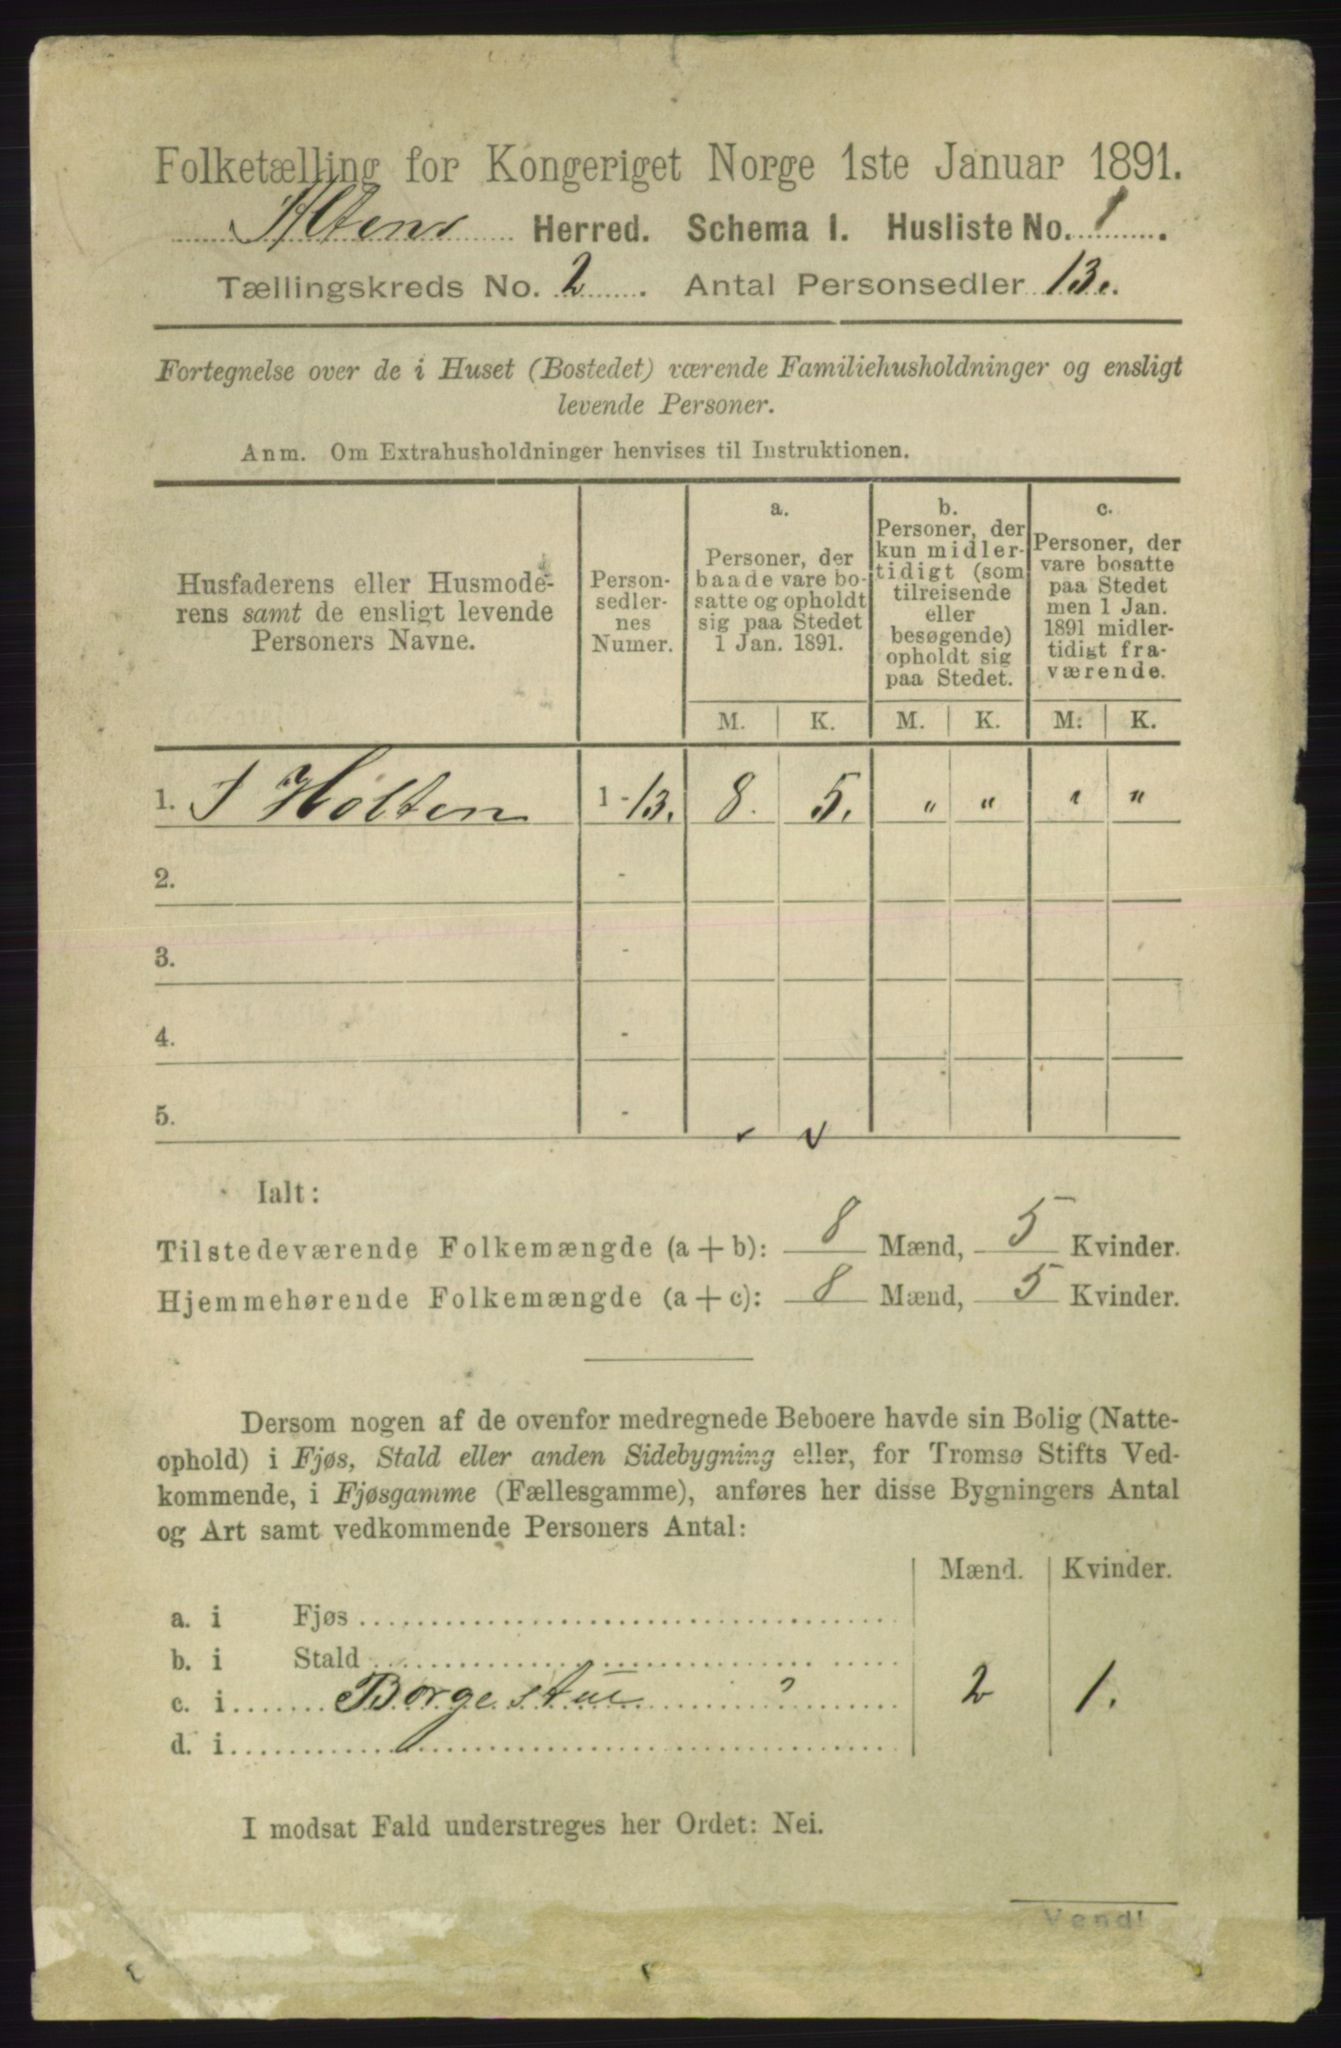 Folketælling for Kongeriget Norge 1ste Januar 1891.
Altens Herred. Schema I. Husliste No. 1.
Tællingskreds No. 2. Antal Personsedler 13.
Fortegnelse over de i Huset (Bostedet) værende Familiehusholdninger og ensligt
levende Personer.
Anm. Om Extrahusholdninger henvises til Instruktionen.
Husfaderens eller Husmode-
rens samt de ensligt levende
Personers Navne.
Person-
sedler-
nes
Numer.
a.
Personer, der
baade vare bo-
satte og opholdt
sig paa Stedet
1 Jan. 1891.
b.
Personer, der
kun midler-
tidigt (som
tilreisende
eller
besøgende)
opholdt sig
paa Stedet.
c.
Personer, der
vare bosatte
paa Stedet
men 1 Jan.
1891 midler-
tidigt fra-
værende.
M. K. M. K. M. K.
1. I Holten 1-13. 8. 5. " " " "
2. -
3. -
4. -
5. -
Ialt:
Tilstedeværende Folkemængde (a + b): 8 Mænd, 5 Kvinder.
Hjemmehørende Folkemængde (a + c): 8 Mænd, 5 Kvinder.
Dersom nogen af de ovenfor medregnede Beboere havde sin Bolig (Natte-
ophold) i Fjøs, Stald eller anden Sidebygning eller, for Tromsø Stifts Ved-
kommende, i Fjøsgamme (Fællesgamme), anføres her disse Bygningers Antal
og Art samt vedkommende Personers Antal:
Mænd. Kvinder.
a. i Fjøs
b. i Stald
c. i Borgestue 2 1.
d. i
I modsat Fald understreges her Ordet: Nei.
Vend!